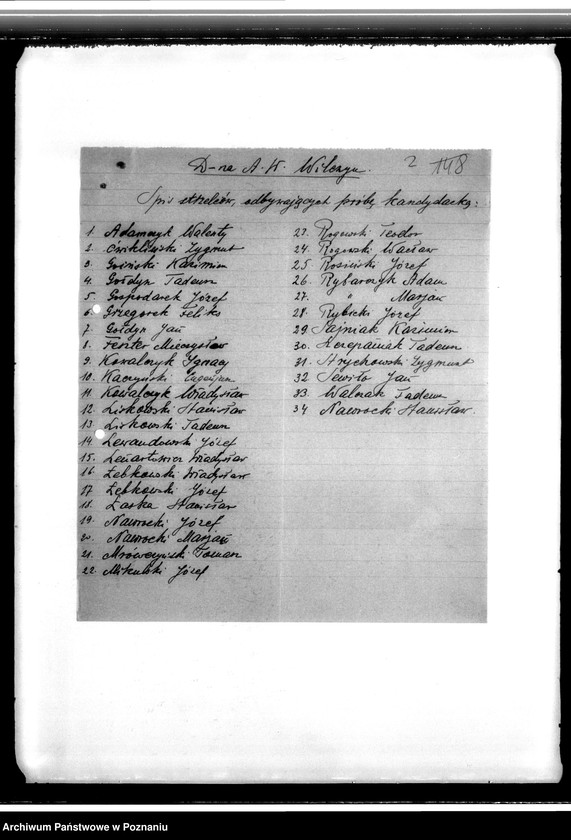 D-na A. K. Wilczyn. 2 148
Spis strzelców, odbywających próbę kandydacką:
1. Adamczyk Walenty
2. Ćwikliński Zygmunt
3. Goiński Kazimierz
4. Gołdyn Tadeusz
5. Gospodarek Józef
6. Grzegorek Feliks
7. Gołdyn Jan
8. Ferster Mieczysław
9. Kowalczyk Ignacy
10. Kaczyński Eugeniusz
11. Kowalczyk Władysław
12. Liskowski Stanisław
13. Liskowski Tadeusz
14. Lewandowski Józef
15. Leuartowicz Władysław
16. Łebkowski Władysław
17. Łebkowski Józef
18. Laska Stanisław
19. Nawrocki Józef
20. Nawrocki Marjan
21. Mrówczyński Roman
22. Mikulski Józef
23. Rogowski Teodor
24. Rogowski Wacław
25. Rosiński Józef
26. Rybarczyk Adam
27. " Marjan
28. Rybicki Józef
29. Pajniak Kazimierz
30. Szczepaniak Tadeusz
31. Strychowski Zygmunt
32. Sewiło Jan
33. Walczak Tadeusz
34. Nawrocki Stanisław.
Archiwum Państwowe w Poznaniu